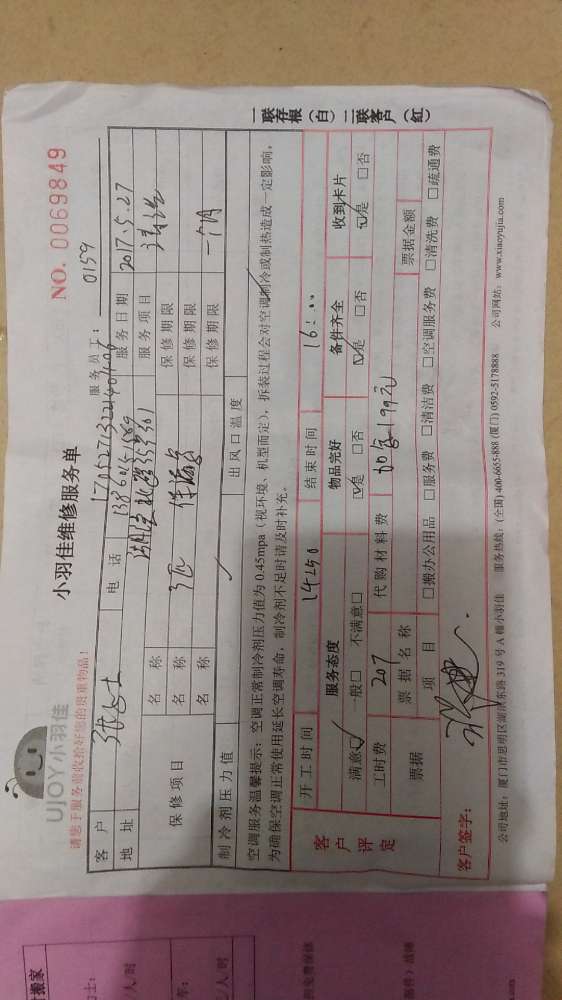 UJOY小羽佳
小羽佳维修服务单
NO. 0069849
请您于服务前收拾好您的贵重物品!
服务员工: 0159
客户 张女士 电话 服务日期 2017.5.27
地址 服务项目 清洗
保修项目 名称 保修期限
名称 保修期限
名称 保修期限 一个月
制冷剂压力值 出风口温度
空调服务温馨提示:空调正常制冷剂压力值为0.45mpa(视环境、机型而定),拆装过程会对空调制冷或制热造成一定影响,
为确保空调正常使用延长空调寿命,制冷剂不足时请及时补充。
客户评定
开工时间 14:50 结束时间 16:00
服务态度 物品完好 备件齐全 收到卡片
满意☑ 一般□ 不满意□ ☑是 □否 ☑是 □否 ☑是 □否
工时费 207 代购材料费
票据 票据名称 票据金额
项目 □搬办公用品 □服务费 □清洁费 □空调服务费 □清洗费 □疏通费
客户签字:
公司地址:厦门市思明区湖滨东路319号A幢小羽佳 服务热线:(全国)400-6655-888 (厦门)0592-5178888 公司网站:www.xiaoyujia.com
一联存根(白)二联客户(红)
搬家
人/时